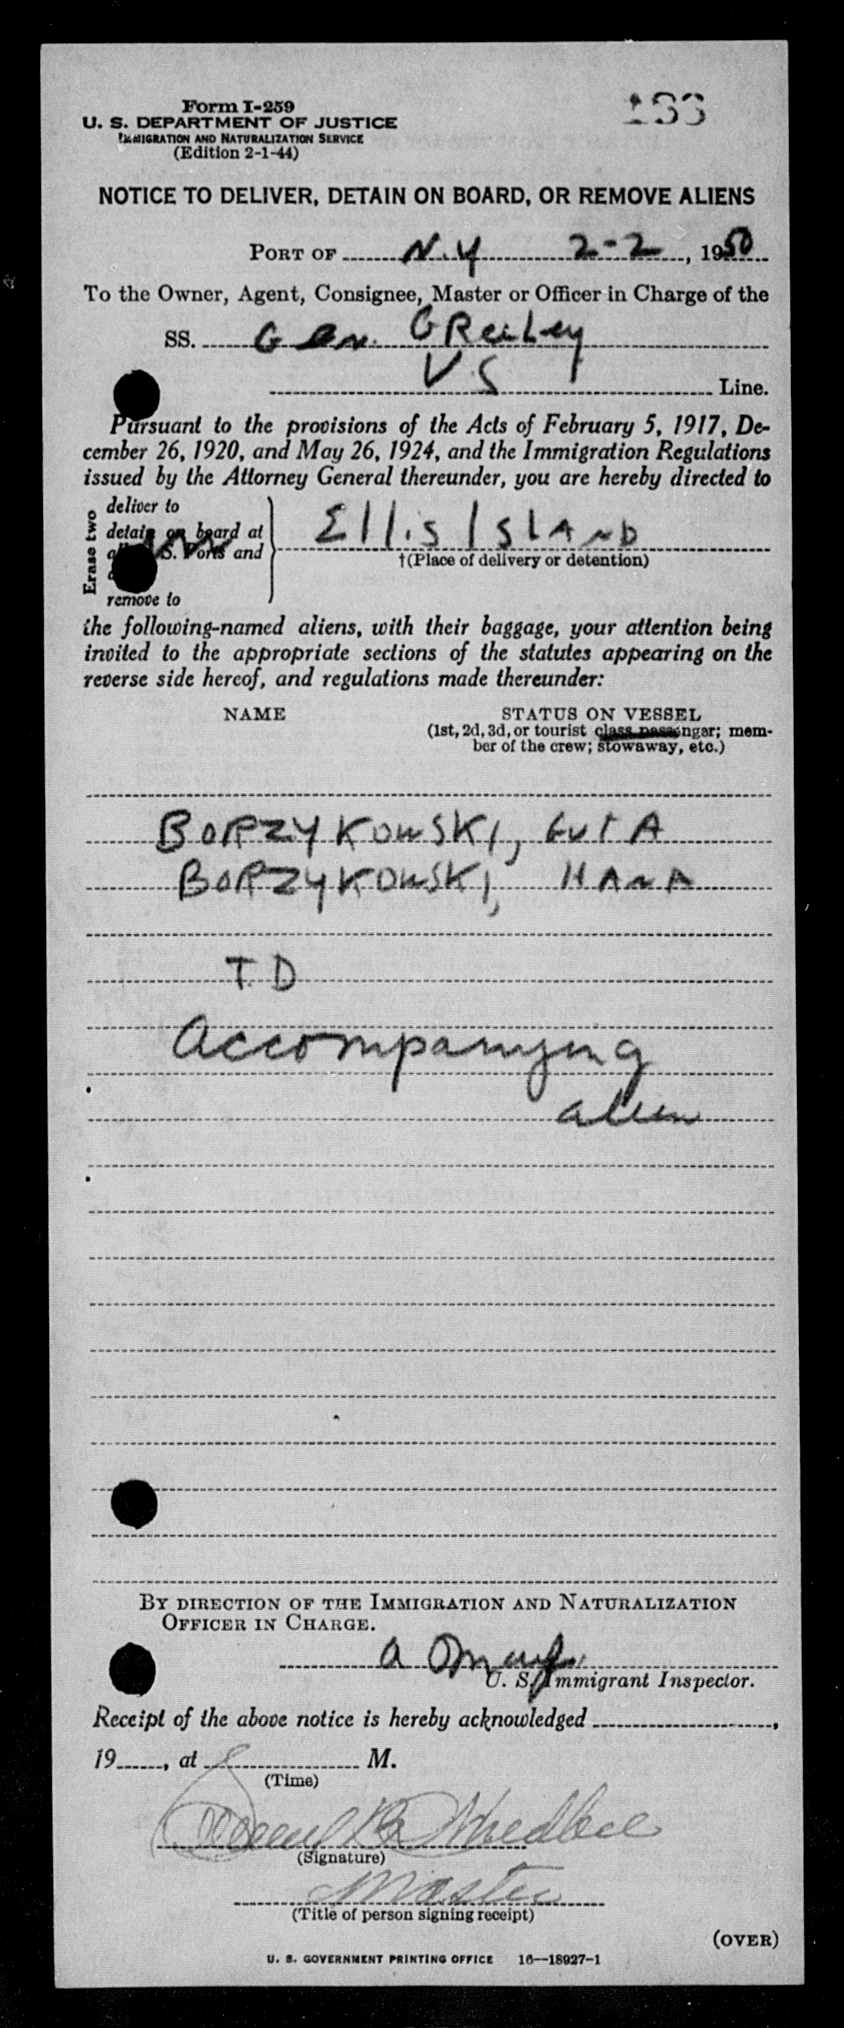 Form I-259
U. S. DEPARTMENT OF JUSTICE
IMMIGRATION AND NATURALIZATION SERVICE
(Edition 2-1-44)
NOTICE TO DELIVER, DETAIN ON BOARD, OR REMOVE ALIENS
PORT OF N.Y 2-2, 1950
To the Owner, Agent, Consignee, Master or Officer in Charge of the
SS. Gen. GReeley
US Line.
Pursuant to the provisions of the Acts of February 5, 1917, De-
cember 26, 1920, and May 26, 1924, and the Immigration Regulations
issued by the Attorney General thereunder, you are hereby directed to
Erase two
deliver to
detain on board at
S. Ports and
remove to
Ellis Island
†(Place of delivery or detention)
the following-named aliens, with their baggage, your attention being
invited to the appropriate sections of the statutes appearing on the
reverse side hereof, and regulations made thereunder:
NAME STATUS ON VESSEL
(1st, 2d, 3d, or tourist class passenger; mem-
ber of the crew; stowaway, etc.)
BORZYKOWSKI, GUTA
BORZYKOWSKI, HANA
TD
Accompanying
alien
BY DIRECTION OF THE IMMIGRATION AND NATURALIZATION
OFFICER IN CHARGE.
U. S. Immigrant Inspector.
Receipt of the above notice is hereby acknowledged ,
19 , at M.
(Time)
(Signature)
Master
(Title of person signing receipt)
(OVER)
U. S. GOVERNMENT PRINTING OFFICE 16—18927-1